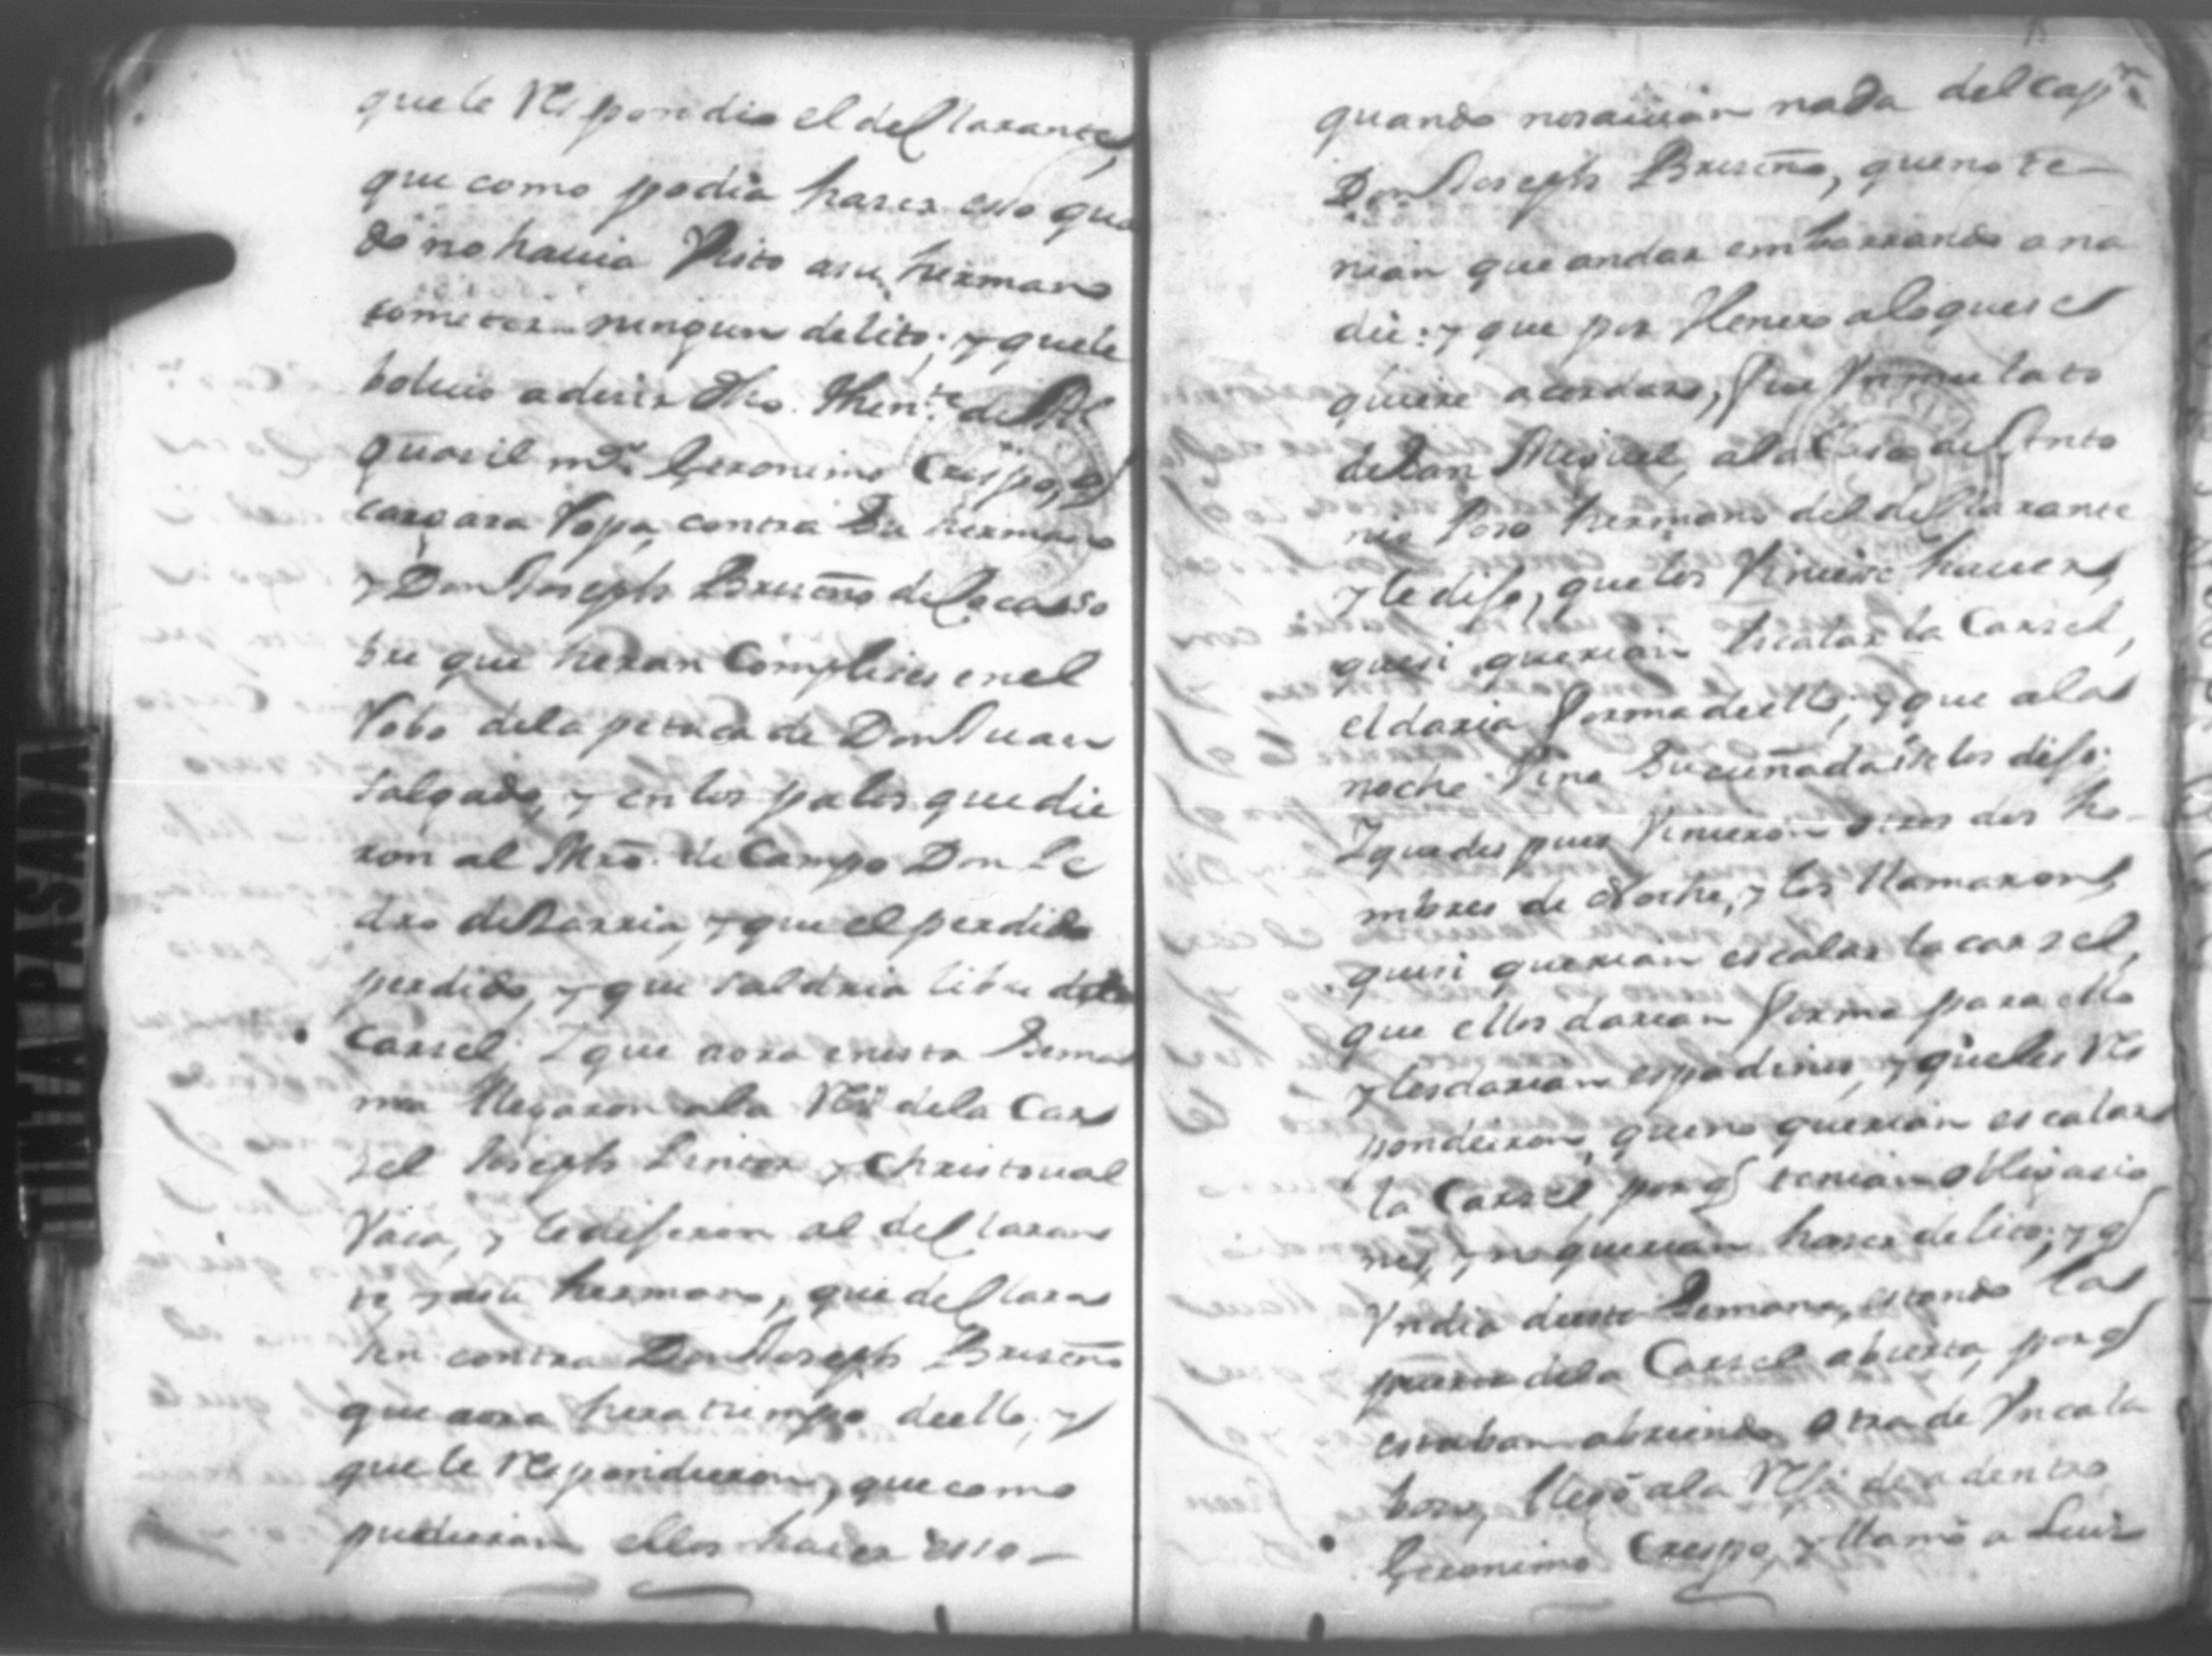 que le Respondio el declarante,
que como podia haser esso quan
do no hauia Visto a su hermano
cometer ningun delito; y que le
boluio a desir dho. Thente. de Al
guasil mor. Geronimo Crespo, q
cargara Ropa contra Su hermano
y Don Joseph Briseño
bre que heran Complises en el
Robo dela petaca de Don Juan
Salgado, y en los palos que die
ron al Mro. de Campo Don Pe
dro de Sarria, y que el perdido
perdido, y que saldria libre dela
Carsel; Y que aora en esta Sema
na llegaron ala Rexa dela Car
sel Joseph Linter y Christoual
Vaca, y le dixeron al declaran
te, y a su hermano, que declaras
sen contra Don Joseph Briseño
que aora hera tiempo de ello; y
que le Respondieron, que como
pudieran ellos haser esso
quando no sauian nada del Capn.
Don Joseph Briseño, que no te
nian que andar embarrando a na
die: y que por Henero alo que se
quiere acordar, fue Vn mulato
de San Miguel, ala Casa de Anto
nio hermano del declarante
y le dixo, que los Viniese hauer,
que si querian escalar la Carsel,
el daria forma de ello, y que ala
noche Vino Su cuñada y se los dixo.
Y que des pues Vinieron otros dos ho
mbres de Noche, y los llamaron,
que si querian escalar la carsel,
que ellos darian forma para ello
y les darian espadines, y que les Res
pondieron, que no querian escalar
la Carsel, por q tenian obligasio
nes, y no querian haser delito; y q
Vn dia de esta Semana, estando la
puerta dela Carsel abierta, por q
estaban abriendo otra de Vn cala
boso, llegó ala Rexa de adentro
Geronimo Crespo, y llamó a Luis
TINTA PASADA